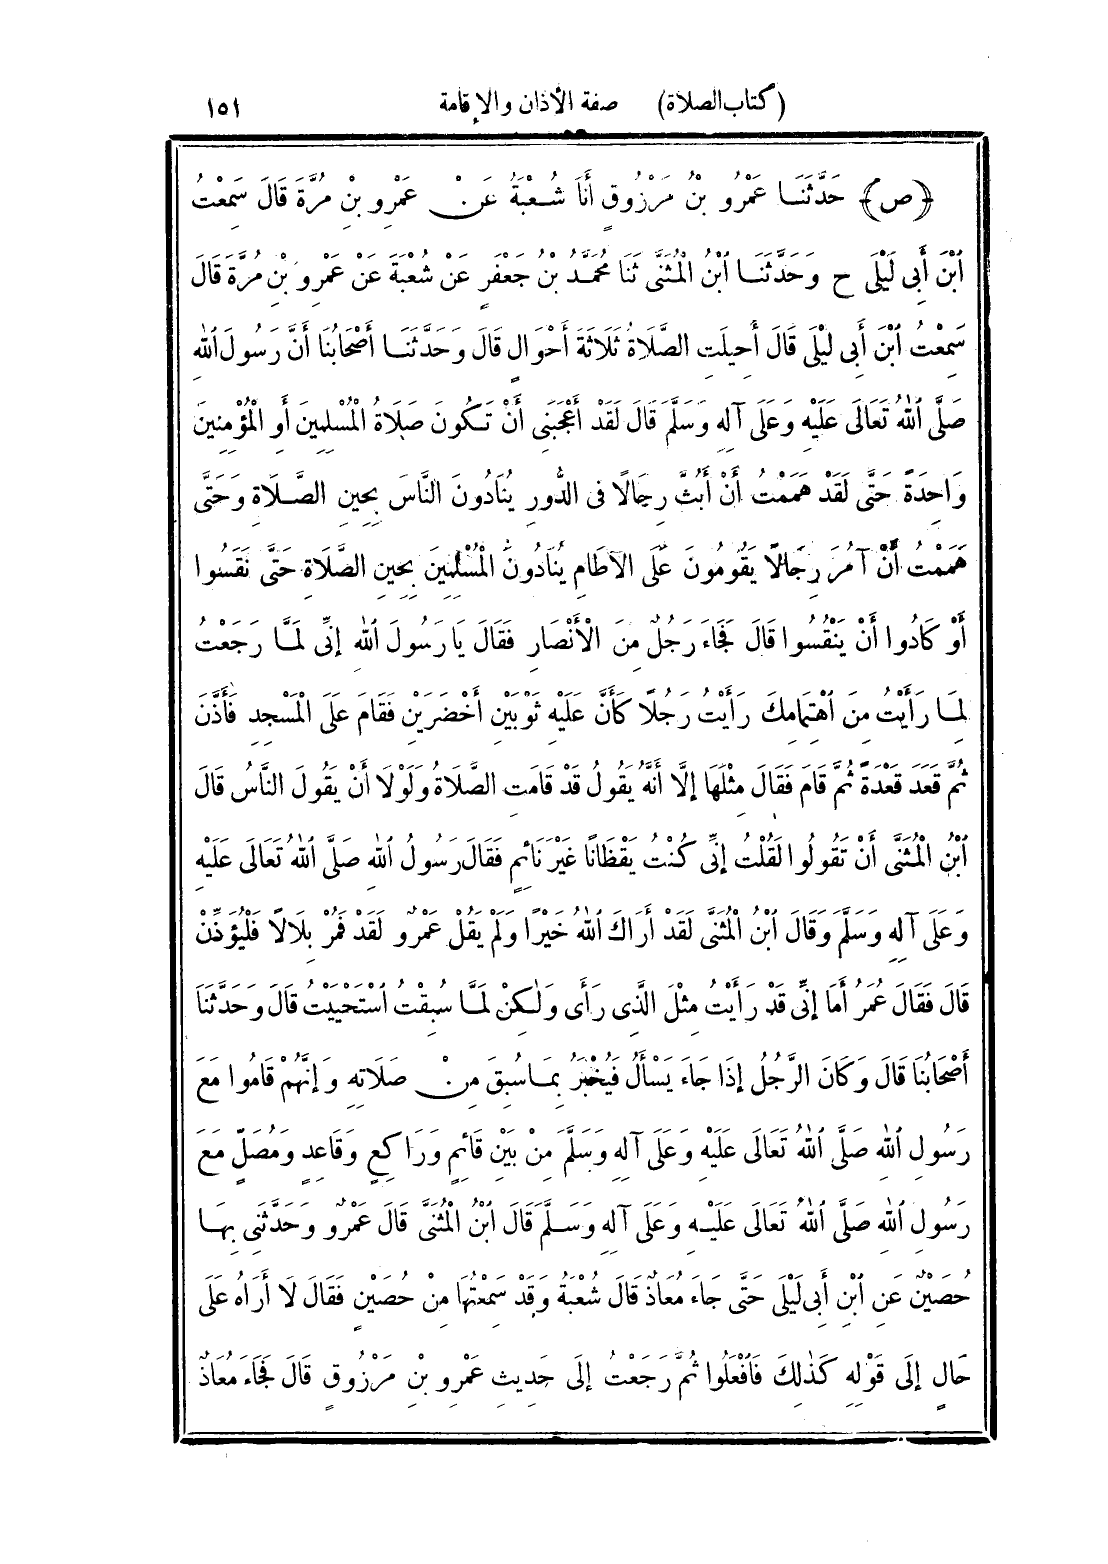 (كتاب الصلاة) صفة الأذان والإقامة ١٥١
﴿ص﴾ حَدَّثَنَا عَمْرُو بْنُ مَرْزُوقٍ أَنَا شُعْبَةُ عَنْ عَمْرِو بْنِ مُرَّةَ قَالَ سَمِعْتُ
ٱبْنَ أَبِى لَيْلَى ح وَحَدَّثَنَا ٱبْنُ الْمُثَنَّى ثَنَا مُحَمَّدُ بْنُ جَعْفَرٍ عَنْ شُعْبَةَ عَنْ عَمْرِو بْنِ مُرَّةَ قَالَ
سَمِعْتُ ٱبْنَ أَبِى لَيْلَى قَالَ أُحِيلَتِ الصَّلَاةُ ثَلَاثَةَ أَحْوَالٍ قَالَ وَحَدَّثَنَا أَصْحَابُنَا أَنَّ رَسُولَ ٱللهِ
صَلَّى ٱللهُ تَعَالَى عَلَيْهِ وَعَلَى آلِهِ وَسَلَّمَ قَالَ لَقَدْ أَعْجَبَنِى أَنْ تَكُونَ صَلَاةُ الْمُسْلِمِينَ أَوِ الْمُؤْمِنِينَ
وَاحِدَةً حَتَّى لَقَدْ هَمَمْتُ أَنْ أَبُثَّ رِجَالًا فِى الدُّورِ يُنَادُونَ النَّاسَ بِحِينِ الصَّلَاةِ وَحَتَّى
هَمَمْتُ أَنْ آمُرَ رِجَالًا يَقُومُونَ عَلَى الْآطَامِ يُنَادُونَ الْمُسْلِمِينَ بِحِينِ الصَّلَاةِ حَتَّى نَقَسُوا
أَوْ كَادُوا أَنْ يَنْقُسُوا قَالَ فَجَاءَ رَجُلٌ مِنَ الْأَنْصَارِ فَقَالَ يَا رَسُولَ ٱللهِ إِنِّى لَمَّا رَجَعْتُ
لِمَا رَأَيْتُ مِنَ ٱهْتِمَامِكَ رَأَيْتُ رَجُلًا كَأَنَّ عَلَيْهِ ثَوْبَيْنِ أَخْضَرَيْنِ فَقَامَ عَلَى الْمَسْجِدِ فَأَذَّنَ
ثُمَّ قَعَدَ قَعْدَةً ثُمَّ قَامَ فَقَالَ مِثْلَهَا إِلَّا أَنَّهُ يَقُولُ قَدْ قَامَتِ الصَّلَاةُ وَلَوْلَا أَنْ يَقُولَ النَّاسُ قَالَ
ٱبْنُ الْمُثَنَّى أَنْ تَقُولُوا لَقُلْتُ إِنِّى كُنْتُ يَقْظَانًا غَيْرَ نَائِمٍ فَقَالَ رَسُولُ ٱللهِ صَلَّى ٱللهُ تَعَالَى عَلَيْهِ
وَعَلَى آلِهِ وَسَلَّمَ وَقَالَ ٱبْنُ الْمُثَنَّى لَقَدْ أَرَاكَ ٱللهُ خَيْرًا وَلَمْ يَقُلْ عَمْرٌو لَقَدْ فَمُرْ بِلَالًا فَلْيُؤَذِّنْ
قَالَ فَقَالَ عُمَرُ أَمَا إِنِّى قَدْ رَأَيْتُ مِثْلَ الَّذِى رَأَى وَلٰكِنْ لَمَّا سُبِقْتُ ٱسْتَحْيَيْتُ قَالَ وَحَدَّثَنَا
أَصْحَابُنَا قَالَ وَكَانَ الرَّجُلُ إِذَا جَاءَ يَسْأَلُ فَيُخْبَرُ بِمَا سُبِقَ مِنْ صَلَاتِهِ وَإِنَّهُمْ قَامُوا مَعَ
رَسُولِ ٱللهِ صَلَّى ٱللهُ تَعَالَى عَلَيْهِ وَعَلَى آلِهِ وَسَلَّمَ مِنْ بَيْنِ قَائِمٍ وَرَاكِعٍ وَقَاعِدٍ وَمُصَلٍّ مَعَ
رَسُولِ ٱللهِ صَلَّى ٱللهُ تَعَالَى عَلَيْهِ وَعَلَى آلِهِ وَسَلَّمَ قَالَ ٱبْنُ الْمُثَنَّى قَالَ عَمْرٌو وَحَدَّثَنِى بِهَا
حُصَيْنٌ عَنِ ٱبْنِ أَبِى لَيْلَى حَتَّى جَاءَ مُعَاذٌ قَالَ شُعْبَةُ وَقَدْ سَمِعْتُهَا مِنْ حُصَيْنٍ فَقَالَ لَا أَرَاهُ عَلَى
حَالٍ إِلَى قَوْلِهِ كَذٰلِكَ فَٱفْعَلُوا ثُمَّ رَجَعْتُ إِلَى حَدِيثِ عَمْرِو بْنِ مَرْزُوقٍ قَالَ فَجَاءَ مُعَاذٌ